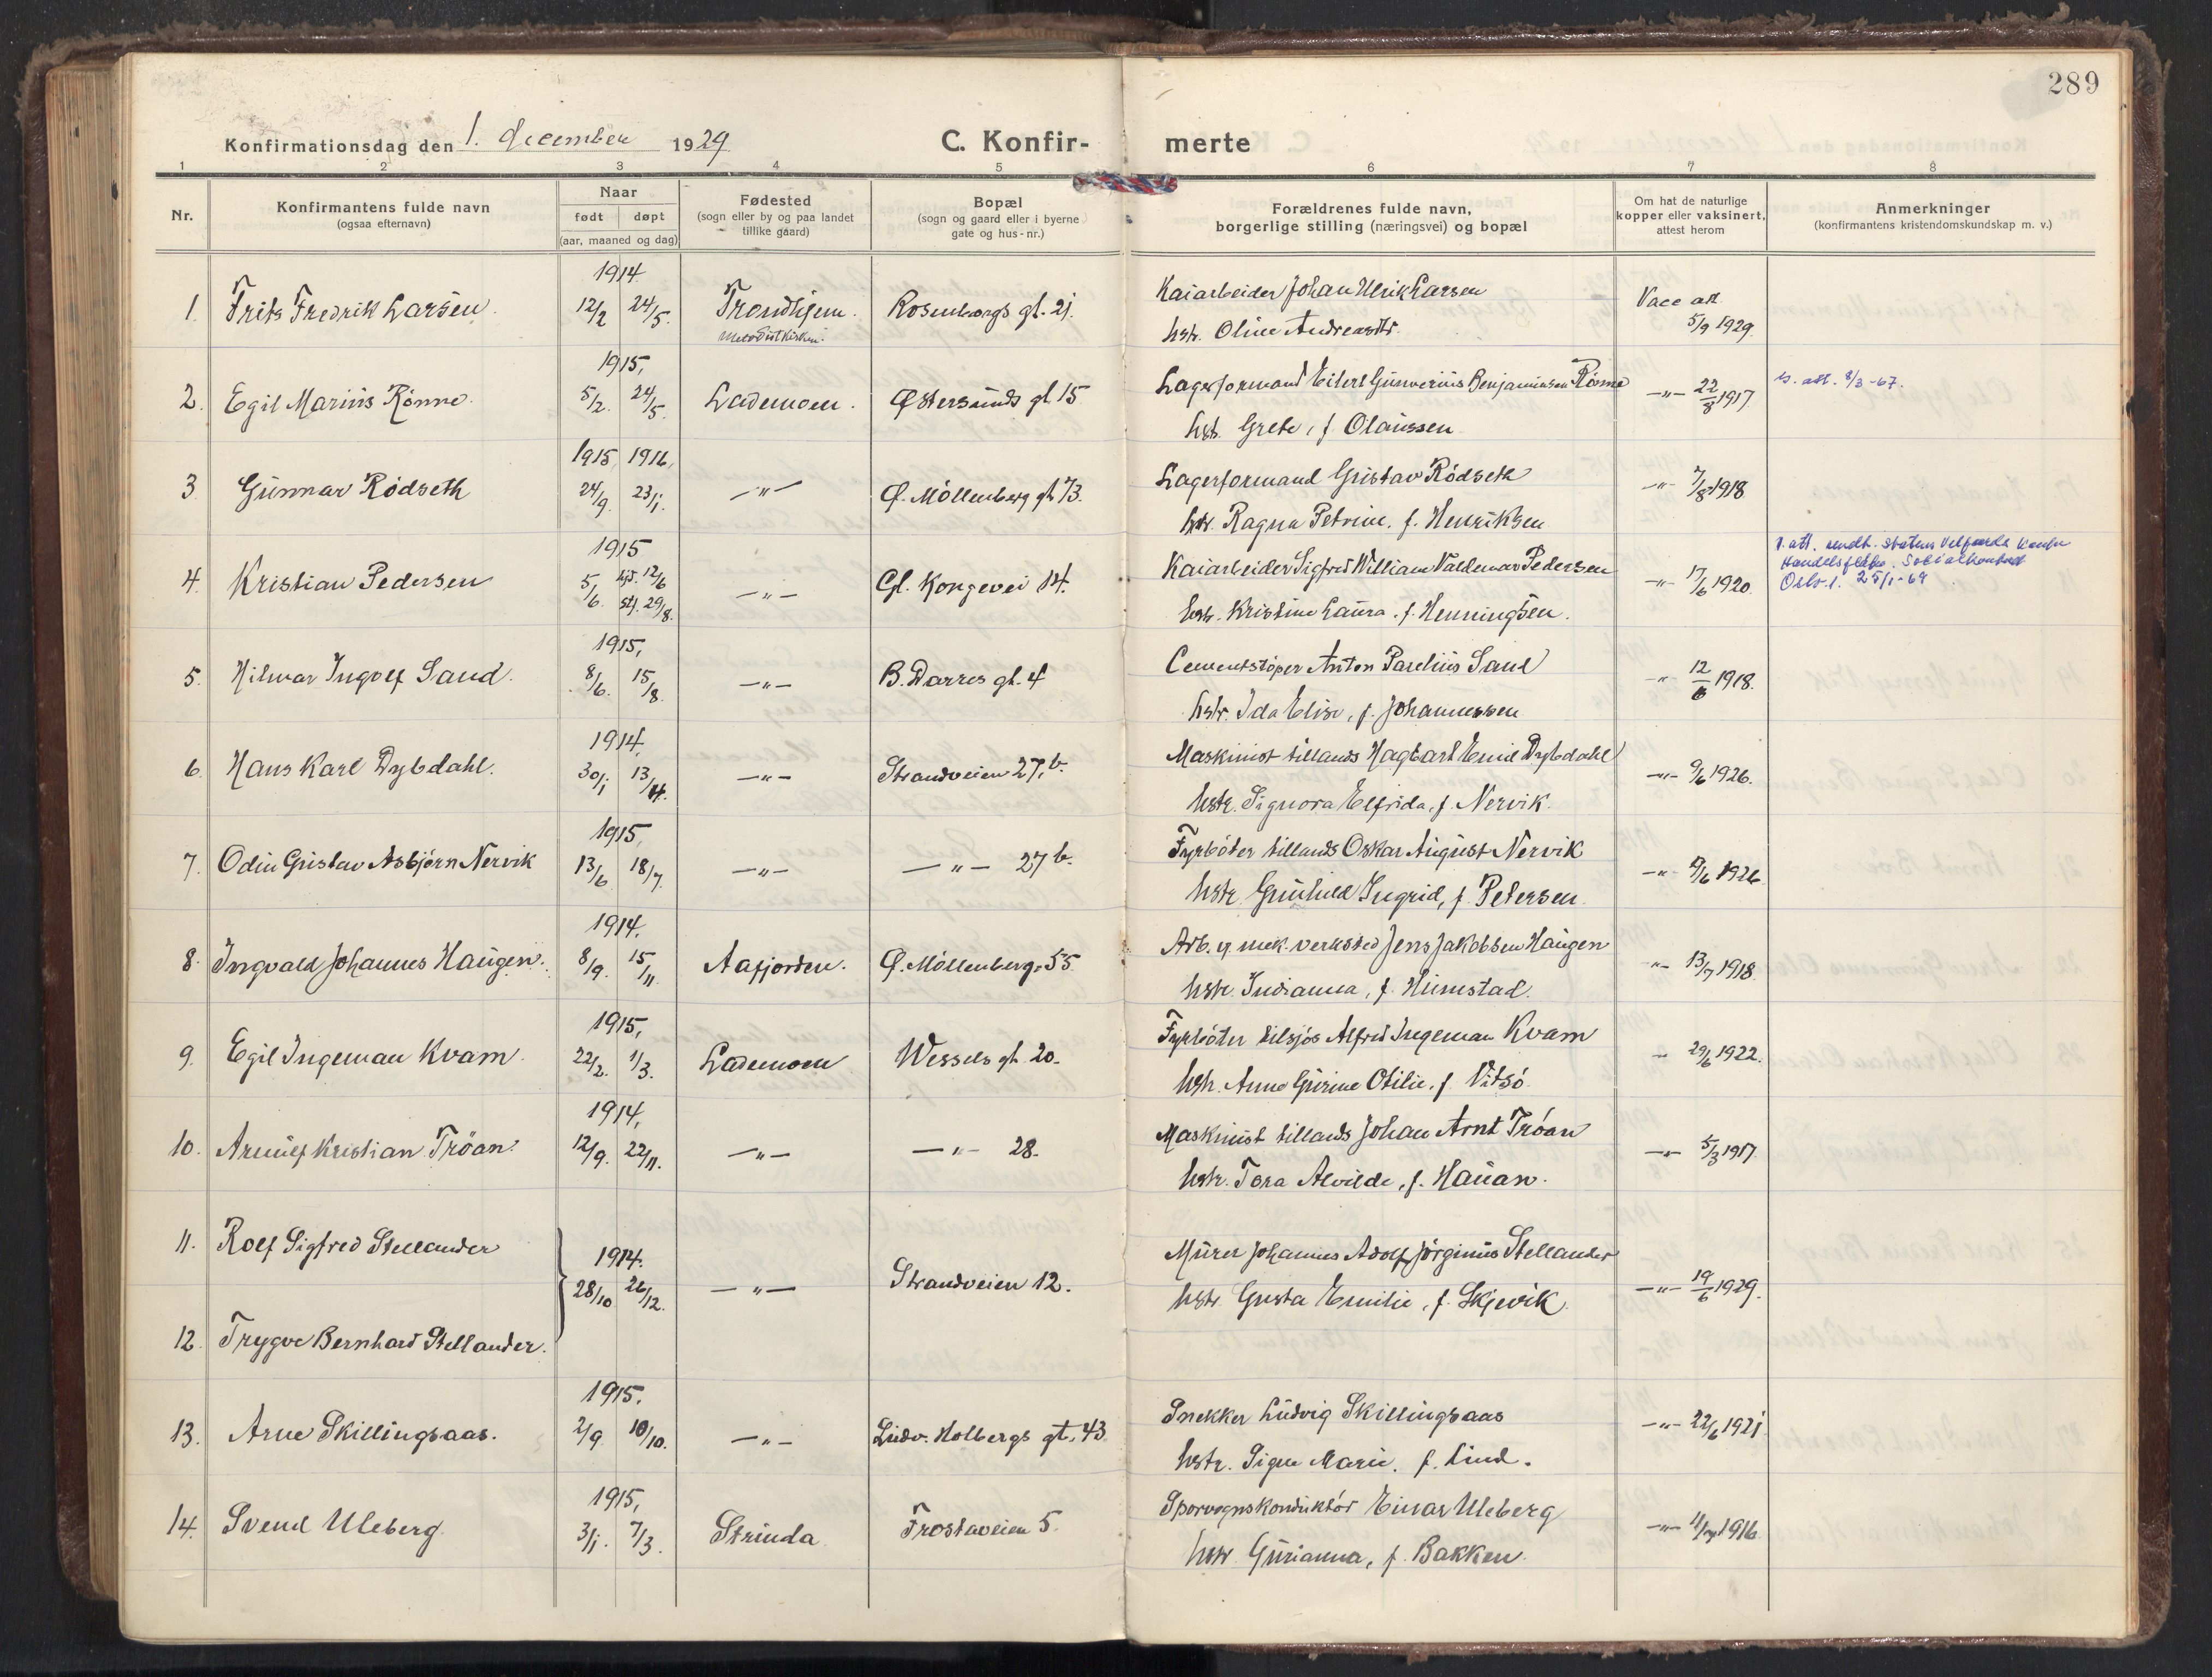 289
Konfirmationsdag den 1. december 1929
C. Konfir-
merte
1 2 3 4 5 6 7 8
Nr.
Konfirmantens fulde navn
(ogsaa efternavn)
Naar
født døpt
(aar, maaned og dag)
Fødested
(sogn eller by og paa landet
tillike gaard)
Bopæl
(sogn og gaard eller i byerne
gate og hus-nr.)
Forældrenes fulde navn,
borgerlige stilling (næringsvei) og bopæl
Om hat de naturlige
kopper eller vaksinert,
attest herom
Anmerkninger
(konfirmantens kristendomskundskap m. v.)
1914.
1. Frits Fredrik Larsen. 12/2 24/5. Trondhjem. Rosenborgs gt. 21.
Metodistkirken.
Kaiarbeider Johan Ulrik Larsen
hstr. Oline Andreasdtr.
Vacc att.
5/9 1929.
1915,
2. Egil Marius Rönne. 5/2. 24/5. Lademoen. Østersunds gt 15
Lagerformand Eilert Gunverius Benjaminsen Rönne
hstr. Grete, f. Olaussen
—„— 22/8 1917
s. att. 8/3-67.
1915, 1916,
3. Gunnar Rödseth 24/9. 23/1. —„— Ø. Möllenberg gt 73.
Lagerformand Gustav Rödseth
hstr. Ragna Petrine. f. Henriksen
—„— 7/8 1918
1915
4. Kristian Pedersen 5/6. hjd. 12/6 —„— Gl. Kongevei 14.
stf. 29/8.
Kaiarbeider Sigfred William Valdemar Pedersen
hstr. Kristine Laura. f. Henningsen.
—„— 17/6 1920.
1. att. sendt. statens Velferds
Handelsflåten. Socialkontoret
Oslo-1. 25/1-69
1915,
5. Hilmar Ingolf Sand. 8/6. 15/8. —„— B. Darres gt. 4
Cementstöper Anton Parelius Sand
hstr. Ida Elise, f. Johannessen
—„— 12/6 1918.
1914,
6. Hans Karl Dybdahl. 30/1 13/4. —„— Strandveien 27, b.
Maskinist tillands Hagbart Emil Dybdahl
hstr. Signora Elfrida, f. Nervik.
—„— 9/6 1926.
1915,
7. Odin Gustav Asbjörn Nervik 13/6 18/7. —„— —„— 27 b.
Fyrböter tillands Oskar August Nervik
hstr. Gunhild Ingrid, f. Petersen.
—„— 9/6 1926
1914.
8. Ingvald Johannes Haugen. 8/9. 15/11. Aafjorden. Ø. Möllenberg. 55
Arb. v mek. verksted Jens Jakobsen Haugen
hstr. Indianna, f. Humstad.
—„— 13/7 1918.
1915,
9. Egil Ingeman Kvam. 22/2. 1/3. Lademoen Wessels gt. 20.
Fyrböter tilsjös Alfred Ingeman Kvam
hstr. Anna Gurine Otilie, f. Vitsö.
„ 29/6 1922.
1914,
10. Arnulf Kristian Tröan. 12/9. 22/11. —„— —„— 28.
Maskinist tillands Johan Arnt Tröan
hstr. Tora Alvilde, f. Hauan.
—„— 5/3 1917.
11. Rolf Sigfred Stellander
1914.
28/10 26/12. —„— Strandveien 12.
Murer Johannes Adolf Jörginus Stellander
hstr. Gusta Emilie, f. Skjevik.
—„— 19/6 1929.
12. Trygve Bernhard Stellander.
1915.
13. Arne Skillingsaas. 2/9. 10/10. —„— Ludv. Holbergs gt. 43
Snekker Ludvig Skillingsaas
hstr. Signe Marie. f. Lind.
—„— 22/6 1921
1915,
14. Svend Uleberg. 3/1. 7/3. Strinda Frostaveien 5.
Sporvognskonduktör Einar Uleberg
hstr. Gurianna, f. Bakken.
—„— 1916.